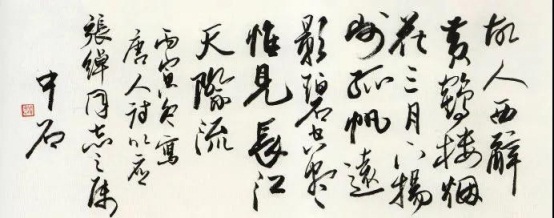 故人西辞
黄鹤楼烟
花三月下揚
州孤帆遠
影碧空尽
惟見長江
天際流
丙寅冬寫
唐人詩以應
張績同志之属
中石